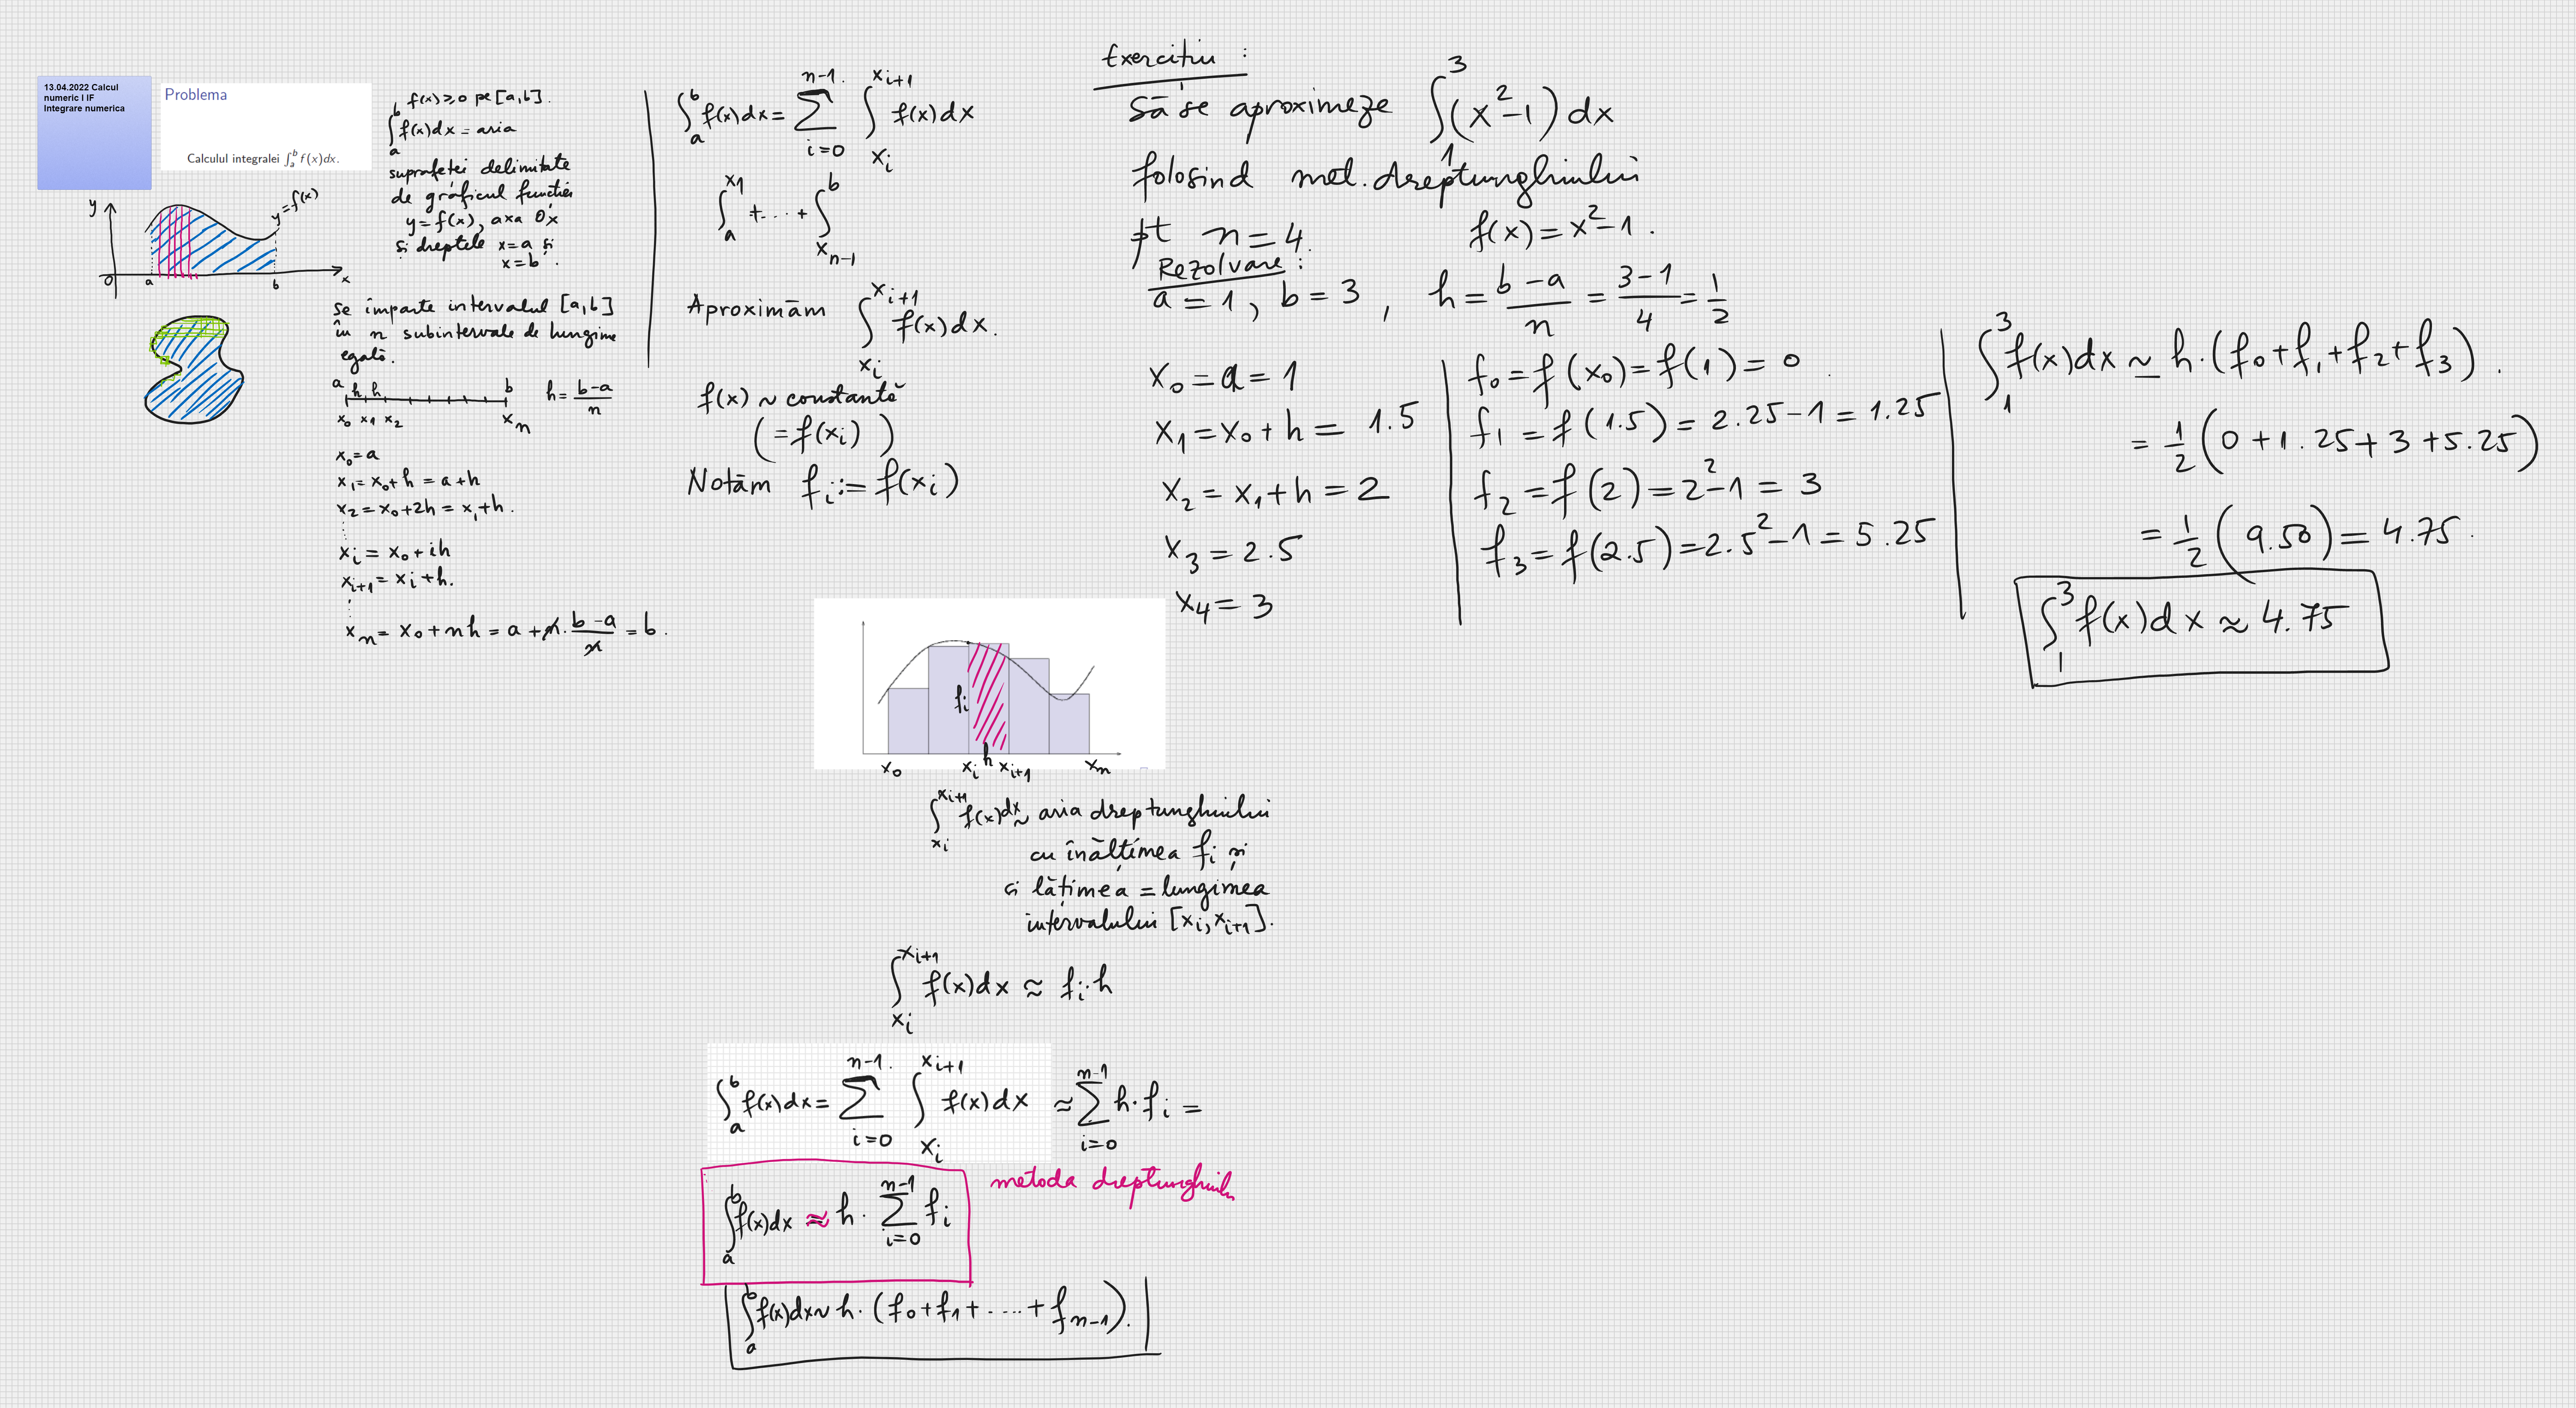 13.04.2022 Calcul
numeric I IF
Integrare numerica
Problema
Calculul integralei ∫_a^b f(x)dx.
f(x) ≥ 0 pe [a,b].
∫_a^b f(x)dx = aria
suprafeței delimitate
de graficul funcției
y = f(x), axa Ox
și dreptele x = a și
x = b.
y
y = f(x)
0 a b x
se împarte intervalul [a,b]
în n subintervale de lungime
egală.
a h h b
h = (b-a)/n
x_0 x_1 x_2 x_n
x_0 = a
x_1 = x_0 + h = a + h
x_2 = x_0 + 2h = x_1 + h.
x_i = x_0 + ih
x_{i+1} = x_i + h.
x_n = x_0 + nh = a + n · (b-a)/n = b.
∫_a^b f(x)dx = ∑_{i=0}^{n-1} ∫_{x_i}^{x_{i+1}} f(x)dx
∫_a^{x_1} + ... + ∫_{x_{n-1}}^b
Aproximăm ∫_{x_i}^{x_{i+1}} f(x)dx.
f(x) ~ constantă
(= f(x_i))
Notăm f_i := f(x_i)
f_i
h
x_0 x_i x_{i+1} x_n
∫_{x_i}^{x_{i+1}} f(x)dx ~ aria dreptunghiului
cu înălțimea f_i și
și lățimea = lungimea
intervalului [x_i, x_{i+1}].
∫_{x_i}^{x_{i+1}} f(x)dx ≈ f_i · h
∫_a^b f(x)dx = ∑_{i=0}^{n-1} ∫_{x_i}^{x_{i+1}} f(x)dx ≈ ∑_{i=0}^{n-1} h · f_i =
∫_a^b f(x)dx ≈ h · ∑_{i=0}^{n-1} f_i
metoda dreptunghiului
∫_a^b f(x)dx ~ h · (f_0 + f_1 + .... + f_{n-1}).
Exercițiu :
Să se aproximeze ∫_1^3 (x^2-1) dx
folosind met. dreptunghiului
pt n = 4.
f(x) = x^2-1.
Rezolvare :
a = 1, b = 3, h = (b-a)/n = (3-1)/4 = 1/2
x_0 = a = 1
x_1 = x_0 + h = 1.5
x_2 = x_1 + h = 2
x_3 = 2.5
x_4 = 3
f_0 = f(x_0) = f(1) = 0.
f_1 = f(1.5) = 2.25-1 = 1.25
f_2 = f(2) = 2^2-1 = 3
f_3 = f(2.5) = 2.5^2-1 = 5.25
∫_1^3 f(x)dx ≃ h · (f_0 + f_1 + f_2 + f_3).
= 1/2 (0 + 1.25 + 3 + 5.25)
= 1/2 (9.50) = 4.75.
∫_1^3 f(x)dx ≈ 4.75